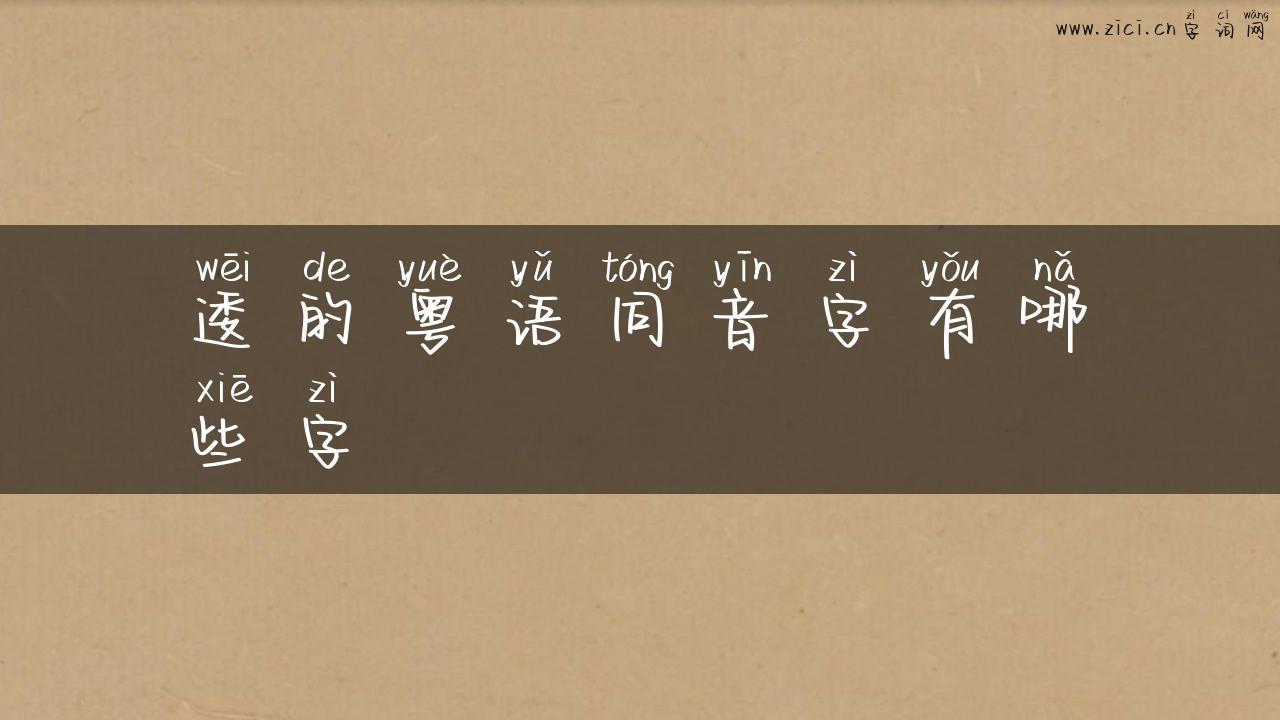 zì cí wǎng
www.zici.cn 字 词 网
wēi de yuè yǔ tóng yīn zì yǒu nǎ
逶 的 粤 语 同 音 字 有 哪
xiē zì
些 字